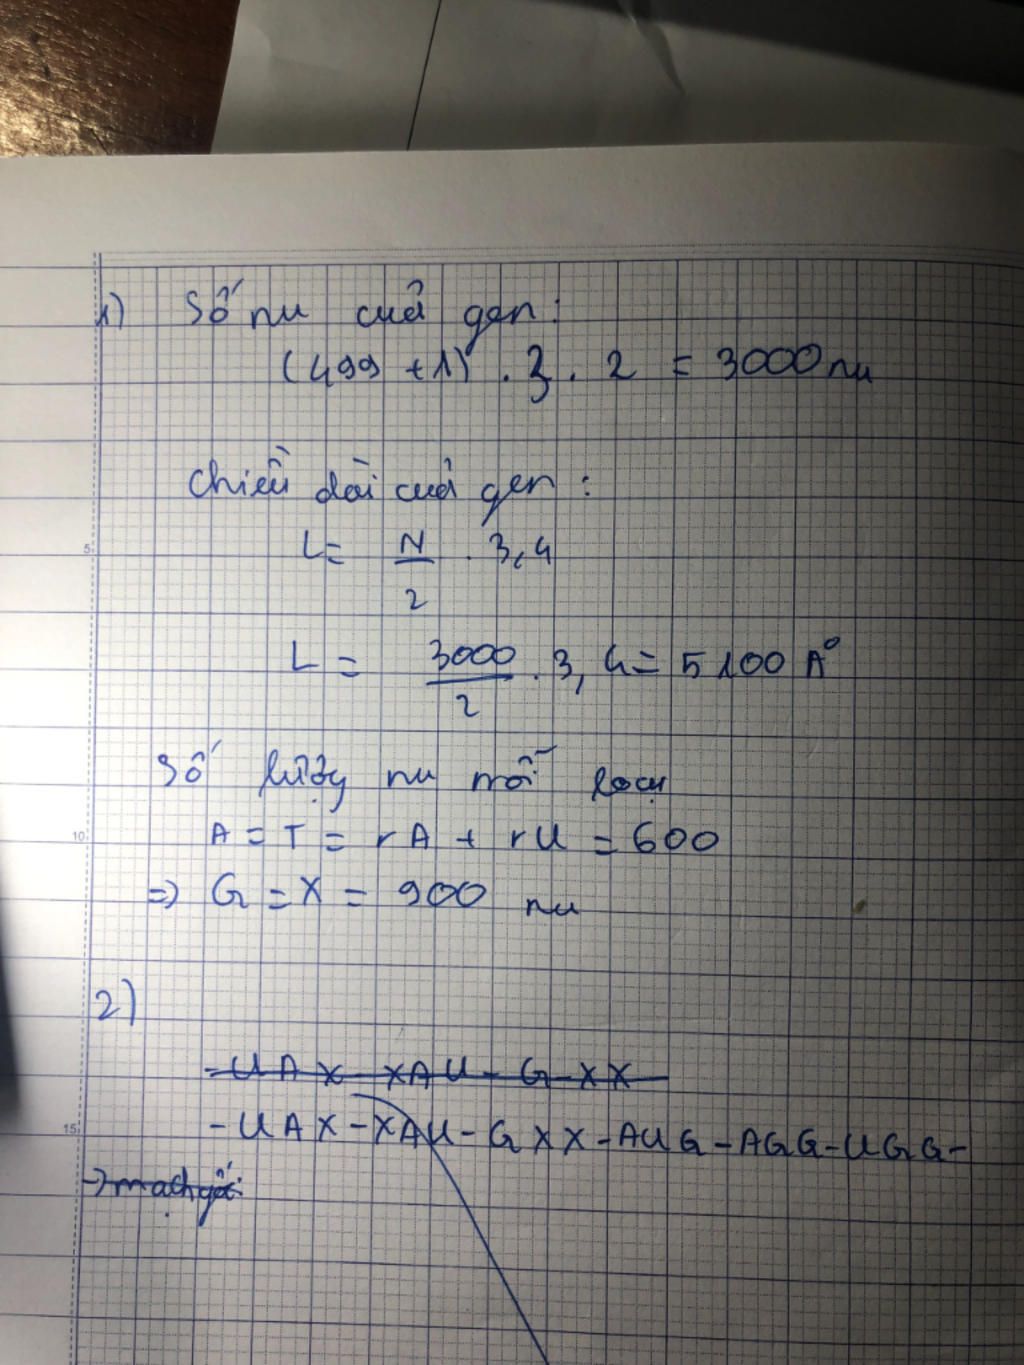 1) Số nu cuả gen:
(499 + 1) . 3 . 2 = 3000 nu
Chiều dài cuả gen:
5
L = N/2 . 3,4
L = 3000/2 . 3,4 = 5100 A°
Số lượng nu mỗi loại
10
A = T = rA + rU = 600
=> G = X = 900 nu
2)
- U A X - X A U - G X X -
15
- U A X - X A U - G X X - A U G - A G G - U G G -
-> mạch gốc: